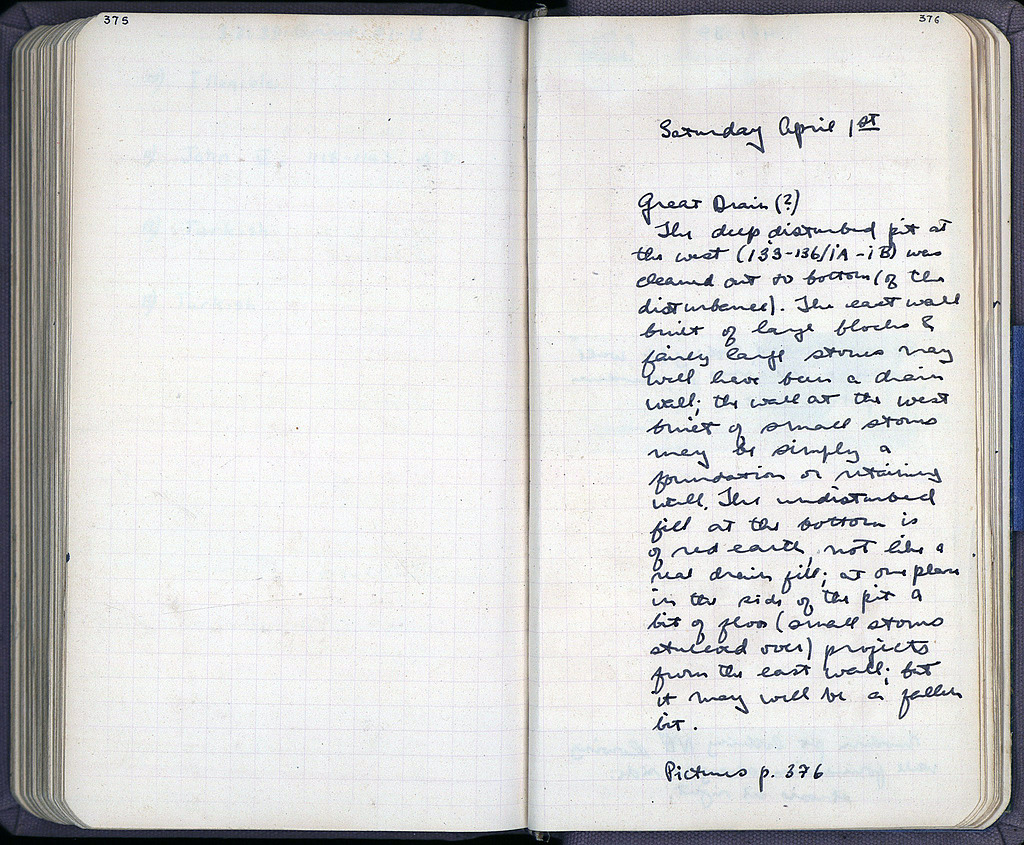 375
376
Saturday April 1st
Great Drain (?)
The deep disturbed pit at
the west (133-136/ΙΑ-ΙΒ) was
cleaned out to bottom (of the
disturbance). The east wall
built of large blocks &
fairly large stones may
well have been a drain
wall; the wall at the west
built of small stones
may be simply a
foundation or retaining
wall. The undisturbed
fill at the bottom is
of red earth, not like a
real drain fill; at one place
in the side of the pit a
bit of floor (small stones
stuccoed over) projects
from the east wall; but
it may well be a fallen
bit.
Pictures p. 376